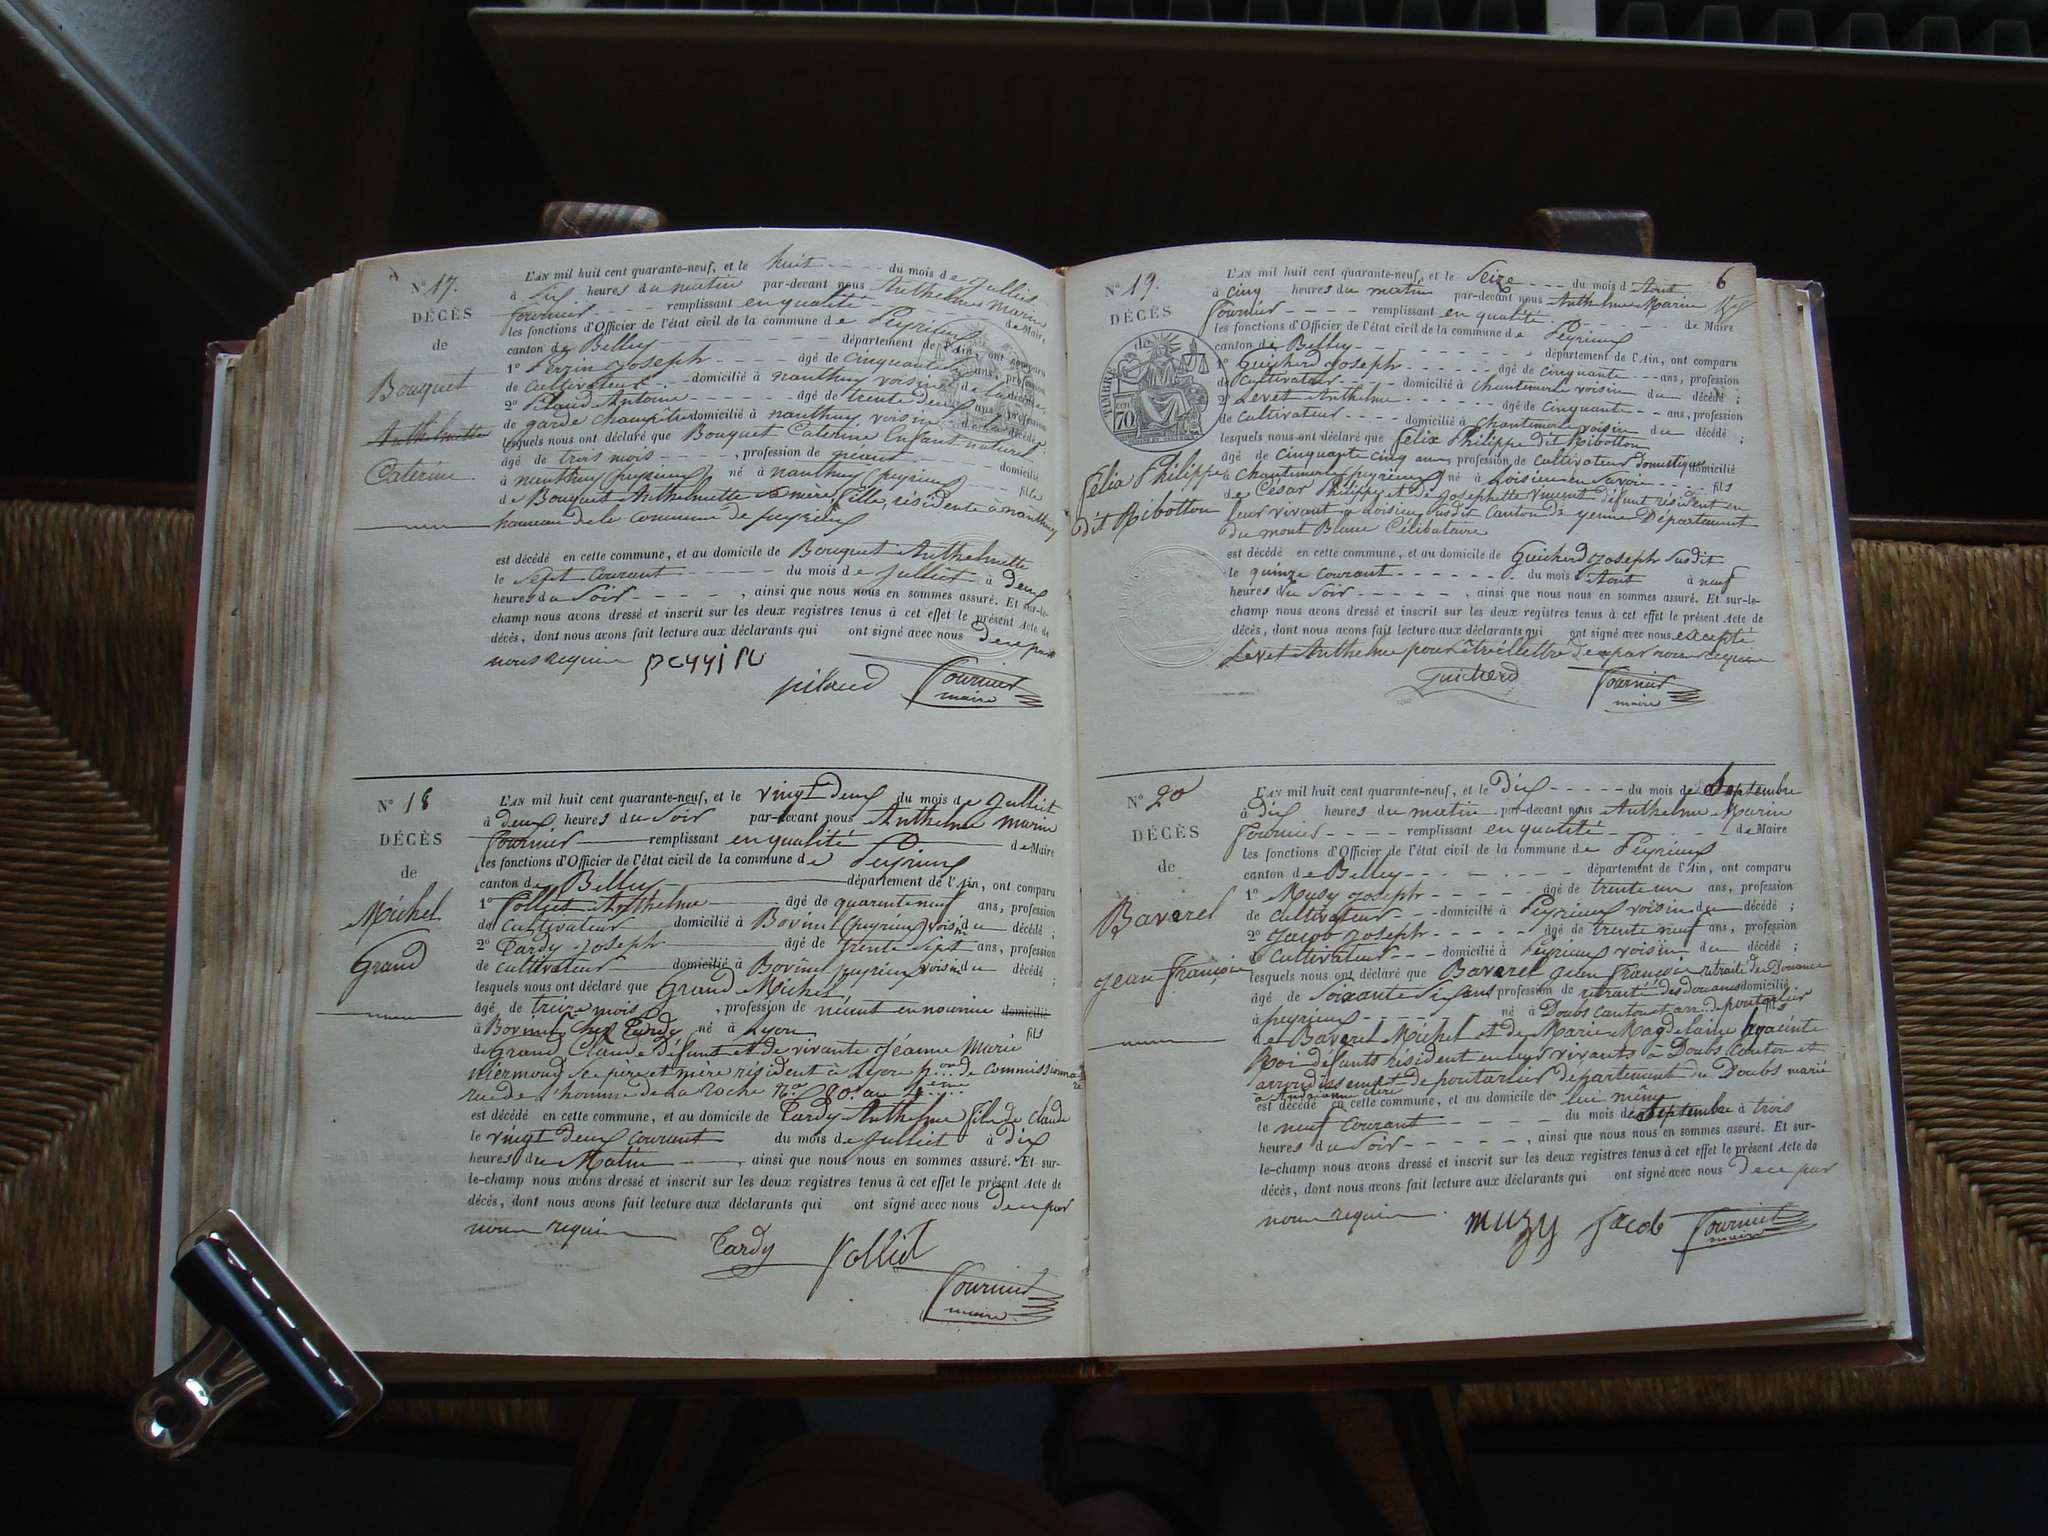 N° 17.
DÉCÈS
de
Bouquet
Anthelmette
Caterine
L'AN mil huit cent quarante-neuf, et le huit du mois de Julliet
à Six heures du matin par-devant nous Anthelme Marin
Fournier remplissant en qualité de Maire
les fonctions d'Officier de l'état civil de la commune de Peyrieux
canton de Belley département de l'Ain, ont comparu
1° Perrin Joseph âgé de cinquante ans, profession
de cultivateur domicilié à nanthuy voisin de la décédée,
2° Pilaud Antoine âgé de trente deux ans, profession
de garde champêtre domicilié à nanthuy voisin de la décédé
lesquels nous ont déclaré que Bouquet Caterine Enfant naturel
âgé de trois mois, profession de neant domicilié
à nanthuy (peyrieux) né à nanthuy (peyrieux) fille
de Bouquet Anthelmette sa mère fille, résidente à nanthuy
hameau de la commune de peyrieux
est décédé en cette commune, et au domicile de Bouquet Anthelmette
le Sept courant du mois de Julliet à deux
heures du Soir, ainsi que nous nous en sommes assuré. Et sur-le-
champ nous avons dressé et inscrit sur les deux registres tenus à cet effet le présent Acte de
décès, dont nous avons fait lecture aux déclarants qui ont signé avec nous de ce par
nous requis perrin
pilaud Fournier
maire
N° 18
DÉCÈS
de
Michel
Grand
L'AN mil huit cent quarante-neuf, et le vingt deux du mois de Julliet
à deux heures du Soir par-devant nous Anthelme Marin
Fournier remplissant en qualité de Maire
les fonctions d'Officier de l'état civil de la commune de Peyrieux
canton de Belley département de l'Ain, ont comparu
1° Folliet Anthelme âgé de quarante neuf ans, profession
de cultivateur domicilié à Bovinel (peyrieux) voisin du décédé ;
2° Tardy Joseph âgé de trente sept ans, profession
de cultivateur domicilié à Bovinel peyrieux voisin du décédé ;
lesquels nous ont déclaré que Grand Michel
âgé de treize mois, profession de néent en nourrice domicilié
à Bovinel chez Tardy né à Lyon, fils
de Grand Claude Défunt et de vivante Jéanne Marie
Miermond se père et mère résident à Lyon pon de commissionnaire
rue de l'homme de la roche No 20 au 4eme
est décédé en cette commune, et au domicile de Tardy Anthelme fils de Claude
le vingt deux courant du mois de Julliet à dix
heures du Matin, ainsi que nous nous en sommes assuré. Et sur-
le-champ nous avons dressé et inscrit sur les deux registres tenus à cet effet le présent Acte de
décès, dont nous avons fait lecture aux déclarants qui ont signé avec nous de ce par
nous requis
Tardy folliet
Fournier
maire
6
N° 19.
DÉCÈS
de
TIMBRE
70
Félix Philippe
dit Ribotton
L'AN mil huit cent quarante-neuf, et le Seize du mois d'Aout
à cinq heures du matin par-devant nous Anthelme Marin
Fournier remplissant en qualité de Maire
les fonctions d'Officier de l'état civil de la commune de Peyrieux
canton de Belley département de l'Ain, ont comparu
1° Guicherd Joseph âgé de cinquante ans, profession
de cultivateur domicilié à chantemerle voisin du décédé ;
2° Levet Anthelme âgé de cinquante ans, profession
de cultivateur domicilié à chantemerle voisin du décédé ;
lesquels nous ont déclaré que félix Philippe dit Ribotton
âgé de cinquante cinq ans, profession de cultivateur domestique domicilié
à chantemerle (peyrieux) né à Loisieu en Savoie fils
de César Philippe et de Josephette vincent défunt résident en
leur vivant à Loisieu susdit Canton de yenne Département
du mont Blanc Célibataire
est décédé en cette commune, et au domicile de Guicherd Joseph susdit
le quinze courant du mois d'Aout à neuf
heures du Soir, ainsi que nous nous en sommes assuré. Et sur-le-
champ nous avons dressé et inscrit sur les deux registres tenus à cet effet le présent Acte de
décès, dont nous avons fait lecture aux déclarants qui ont signé avec nous excepté
Levet Anthelme pour être illettré de ce par nous requis
Guicherd Fournier
maire
N° 20
DÉCÈS
de
Baverel
Jean François
L'AN mil huit cent quarante-neuf, et le Dix du mois de Septembre
à Dix heures du matin par-devant nous Anthelme Marin
Fournier remplissant en qualité de Maire
les fonctions d'Officier de l'état civil de la commune de Peyrieux
canton de Belley département de l'Ain, ont comparu
1° Musy Joseph âgé de trente un ans, profession
de cultivateur domicilié à Peyrieux voisin du décédé ;
2° Jacob Joseph âgé de trente neuf ans, profession
de cultivateur domicilié à Peyrieux voisin du décédé ;
lesquels nous ont déclaré que Baverel Jean François retraité de Douance
âgé de Soixante Six ans profession de retraité des douanes domicilié
à peyrieux né à Doubs canton et arr. de pontarlier fils
de Baverel Michel et de Marie Magdelaine hyacinte
Roi défunts résident en leur vivants à Doubs Canton et
arrondissement de pontarlier département du Doubs marié
est décédé en cette commune, et au domicile de lui même
le neuf courant du mois de Septembre à trois
heures du Soir, ainsi que nous nous en sommes assuré. Et sur-
le-champ nous avons dressé et inscrit sur les deux registres tenus à cet effet le présent Acte de
décès, dont nous avons fait lecture aux déclarants qui ont signé avec nous de ce par
nous requis. muzy Jacob Fournier
maire